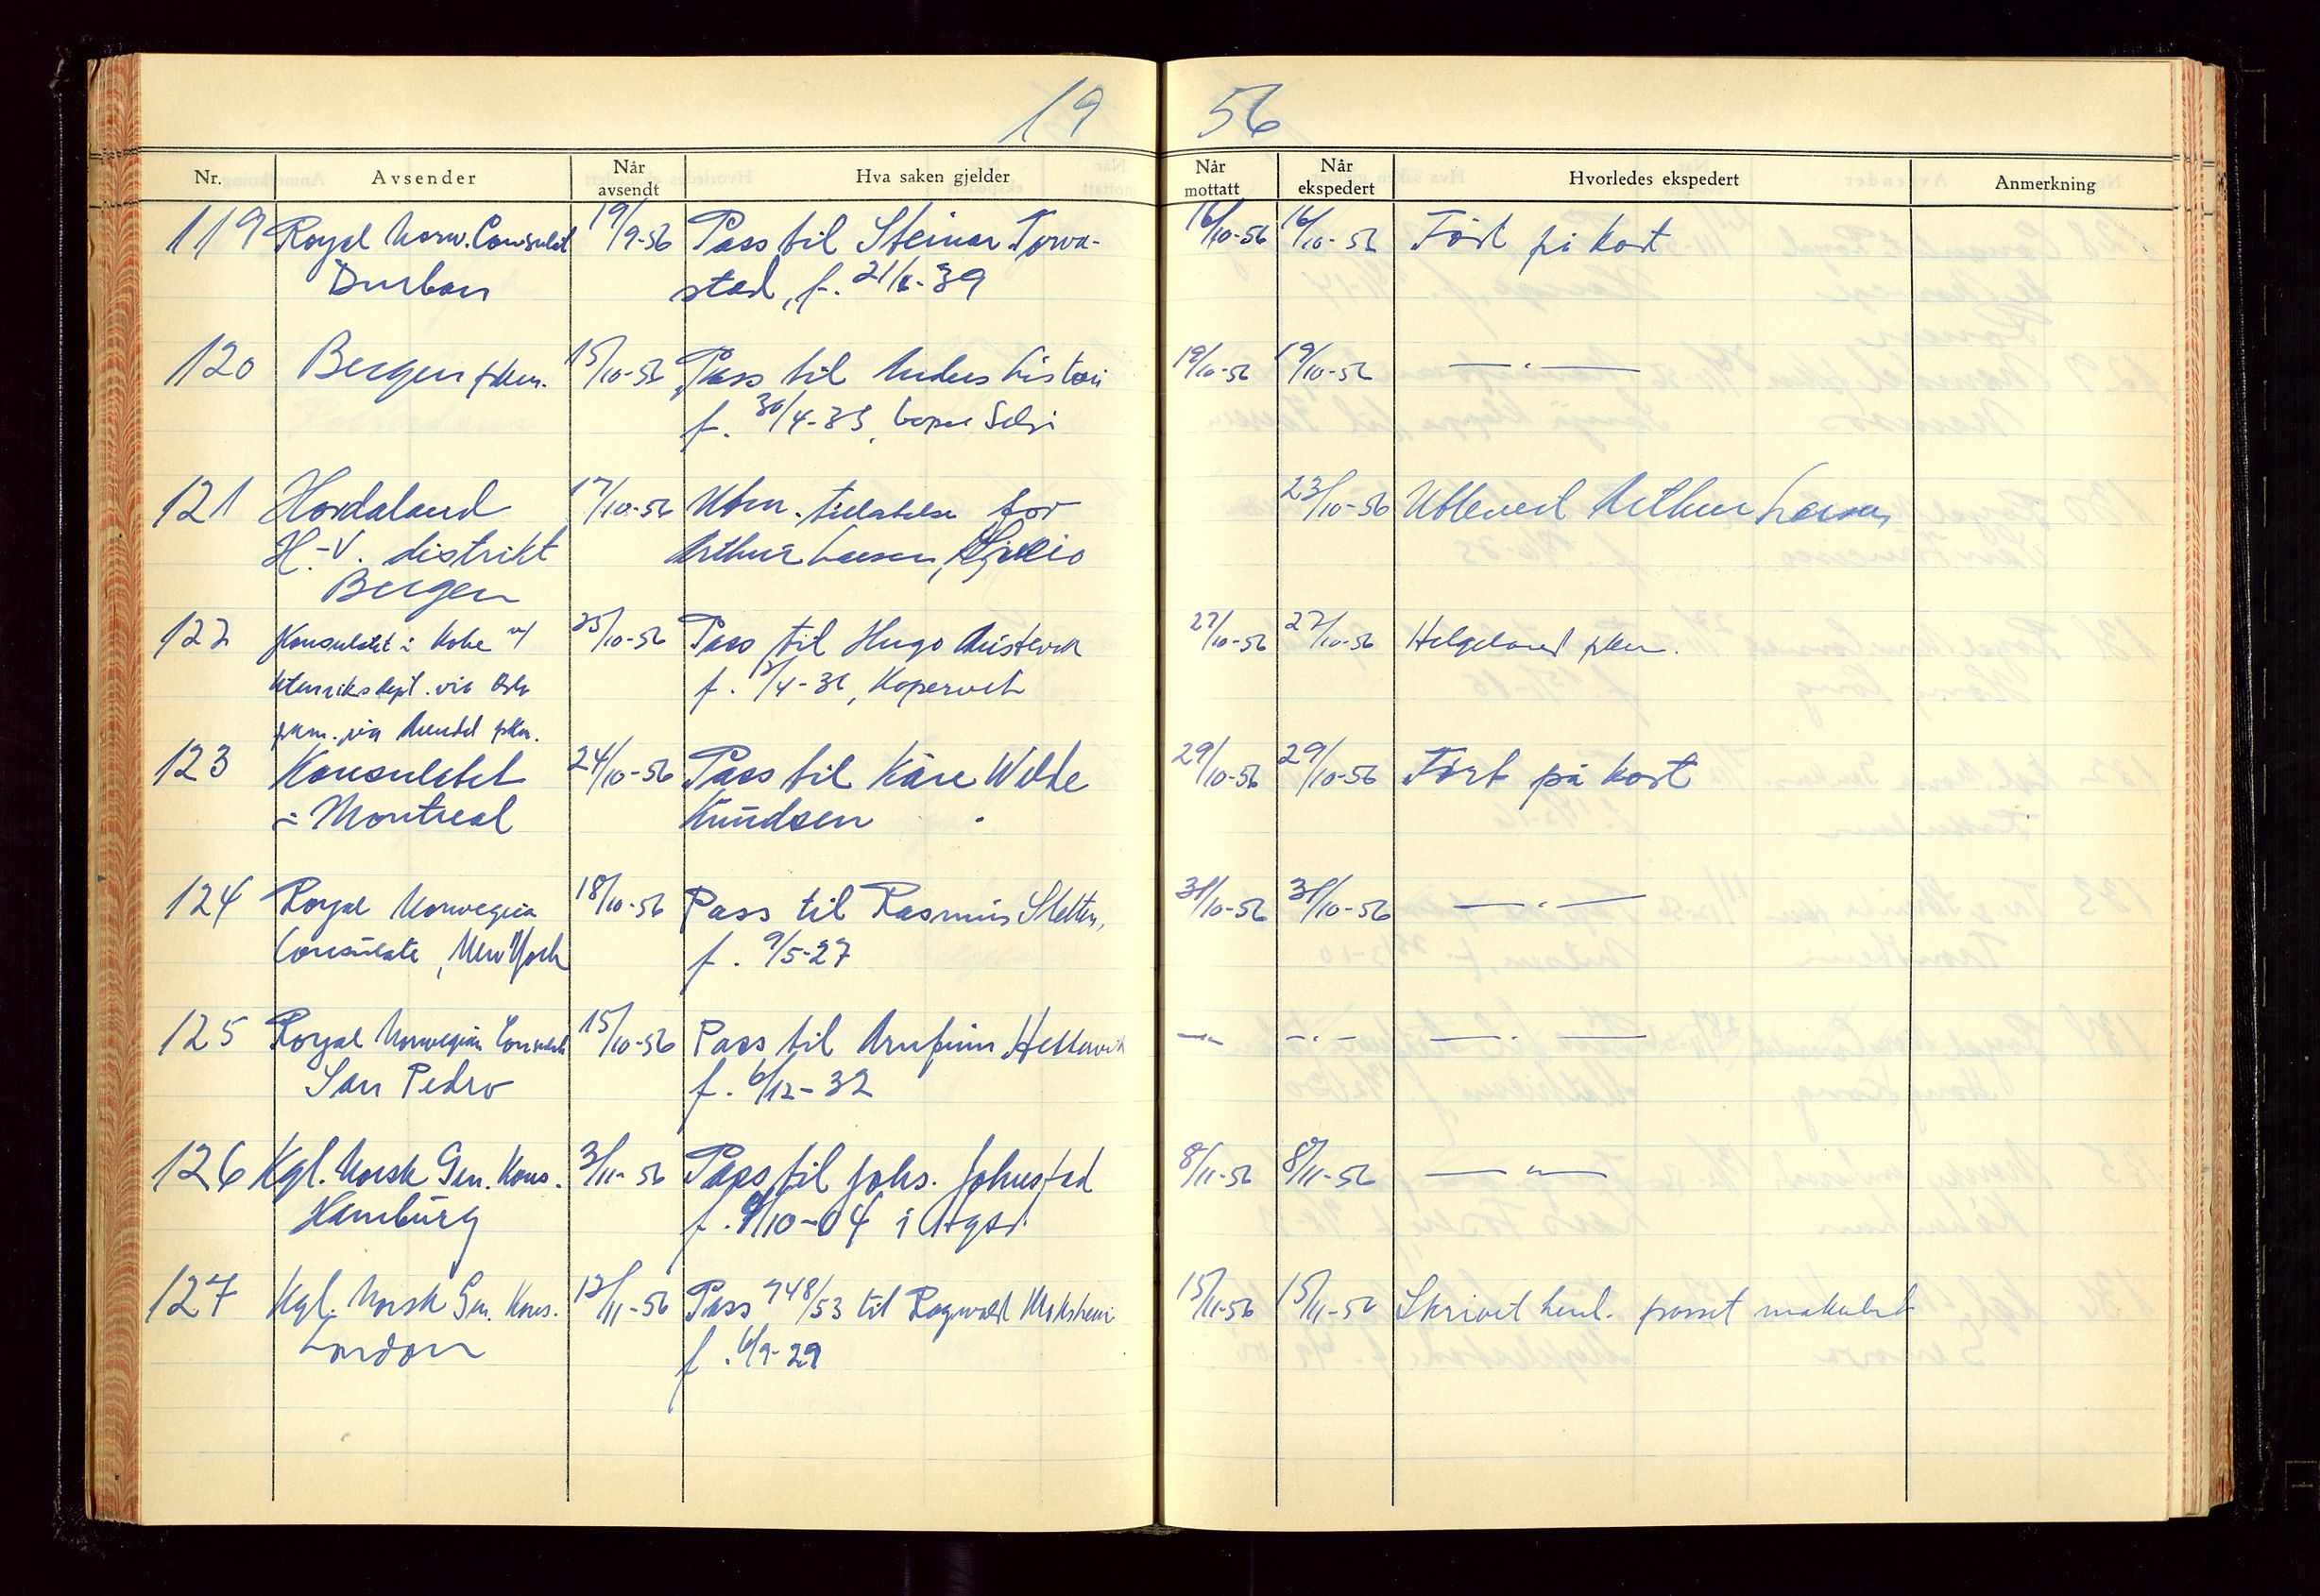 19 56
Nr. Avsender Når avsendt Hva saken gjelder Når mottatt Når ekspedert Hvorledes ekspedert Anmerkning
119 Royal Norw. Consulat 19/9-56 Pass til Steinar Torva- 16/10-56 16/10-56 Ført på kort
Durban stad, f. 21/8-39
120 Bergen pkm. 15/10-56 Pass til Anders 19/10-56 19/10-56 — " —
f. 30/4-33,
121 Hordaland 17/10-56 Utm. tillatelse for 23/10-56 Utlevert Arthur Larsen
H.-V. distrikt Arthur Larsen,
Bergen
122 Konsulatet i Kobe 25/10-56 Pass til Hugo 27/10-56 27/10-56 Helgeland pkm.
Utenriksdept. via Oslo f. /4-36, Kopervik
pkm. via Arendal pkm.
123 Konsulatet 24/10-56 Pass til Kåre Wilhe 29/10-56 29/10-56 Ført på kort
i Montreal Knudsen
124 Royal Norwegian 18/10-56 Pass til Rasmus Sletten, 31/10-56 31/10-56 — " —
Consulate, New York f. 9/5-27
125 Royal Norwegian Consulate 15/10-56 Pass til Arnfinn Hettervik — " — — " — — " —
San Pedro f. 6/12-32
126 Kgl. Norsk Gen. Kons. 3/11-56 Pass til Johs. Johnstad 8/11-56 8/11-56 — " —
Hamburg f. 9/10-04 i
127 Kgl. Norsk Gen. Kons. 12/11-56 Pass 748/53 til Ragnvald Moksheim 15/11-56 15/11-56 Skrivet henl. passet makulert
London f. 6/9-29